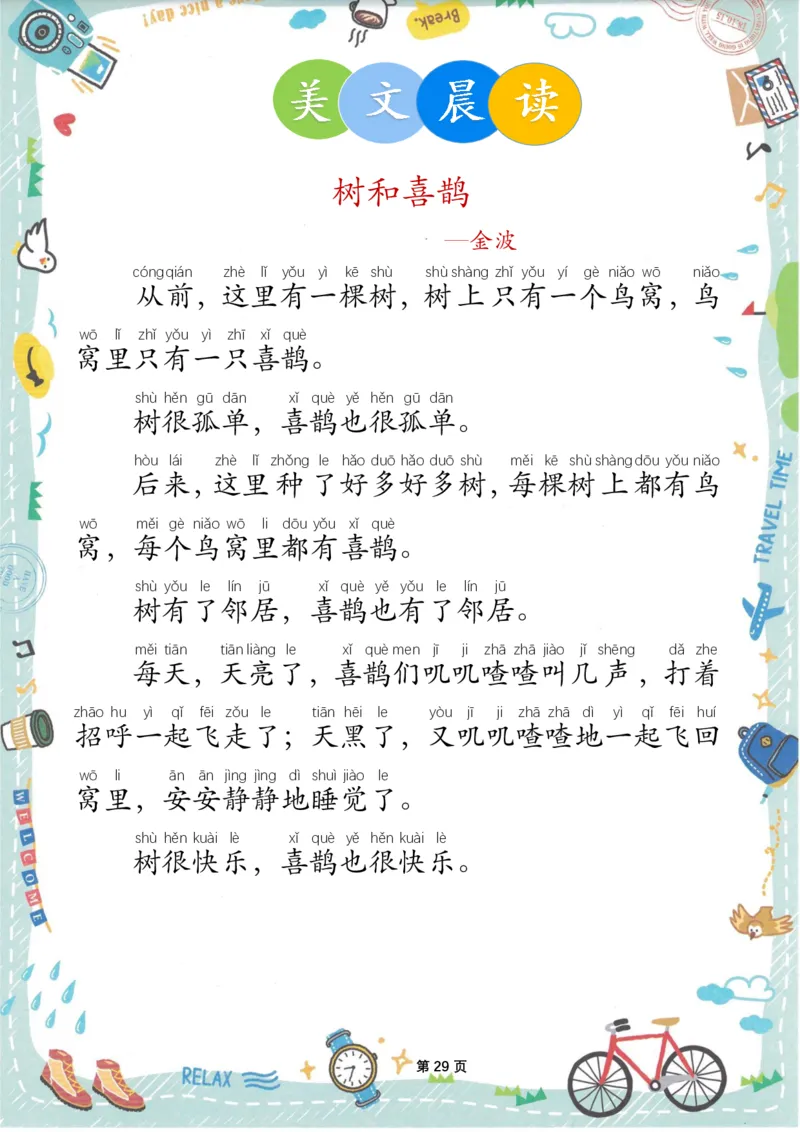 Have a nice day!
Break.
美文晨读
树和喜鹊
—金波
cóng qián zhè lǐ yǒu yì kē shù shù shàng zhǐ yǒu yí gè niǎo wō niǎo
从前，这里有一棵树，树上只有一个鸟窝，鸟
wō lǐ zhǐ yǒu yì zhī xǐ què
窝里只有一只喜鹊。
shù hěn gū dān xǐ què yě hěn gū dān
树很孤单，喜鹊也很孤单。
hòu lái zhè lǐ zhǒng le hǎo duō hǎo duō shù měi kē shù shàng dōu yǒu niǎo
后来，这里种了好多好多树，每棵树上都有鸟
wō měi gè niǎo wō li dōu yǒu xǐ què
窝，每个鸟窝里都有喜鹊。
shù yǒu le lín jū xǐ què yě yǒu le lín jū
树有了邻居，喜鹊也有了邻居。
měi tiān tiān liàng le xǐ què men jī ji zhā zhā jiào jǐ shēng dǎ zhe
每天，天亮了，喜鹊们叽叽喳喳叫几声，打着
zhāo hu yì qǐ fēi zǒu le tiān hēi le yòu jī ji zhā zhā dì yì qǐ fēi huí
招呼一起飞走了；天黑了，又叽叽喳喳地一起飞回
wō li ān ān jìng jìng dì shuì jiào le
窝里，安安静静地睡觉了。
shù hěn kuài lè xǐ què yě hěn kuài lè
树很快乐，喜鹊也很快乐。
TRAVEL TIME
WELCOME
RELAX
第 29 页